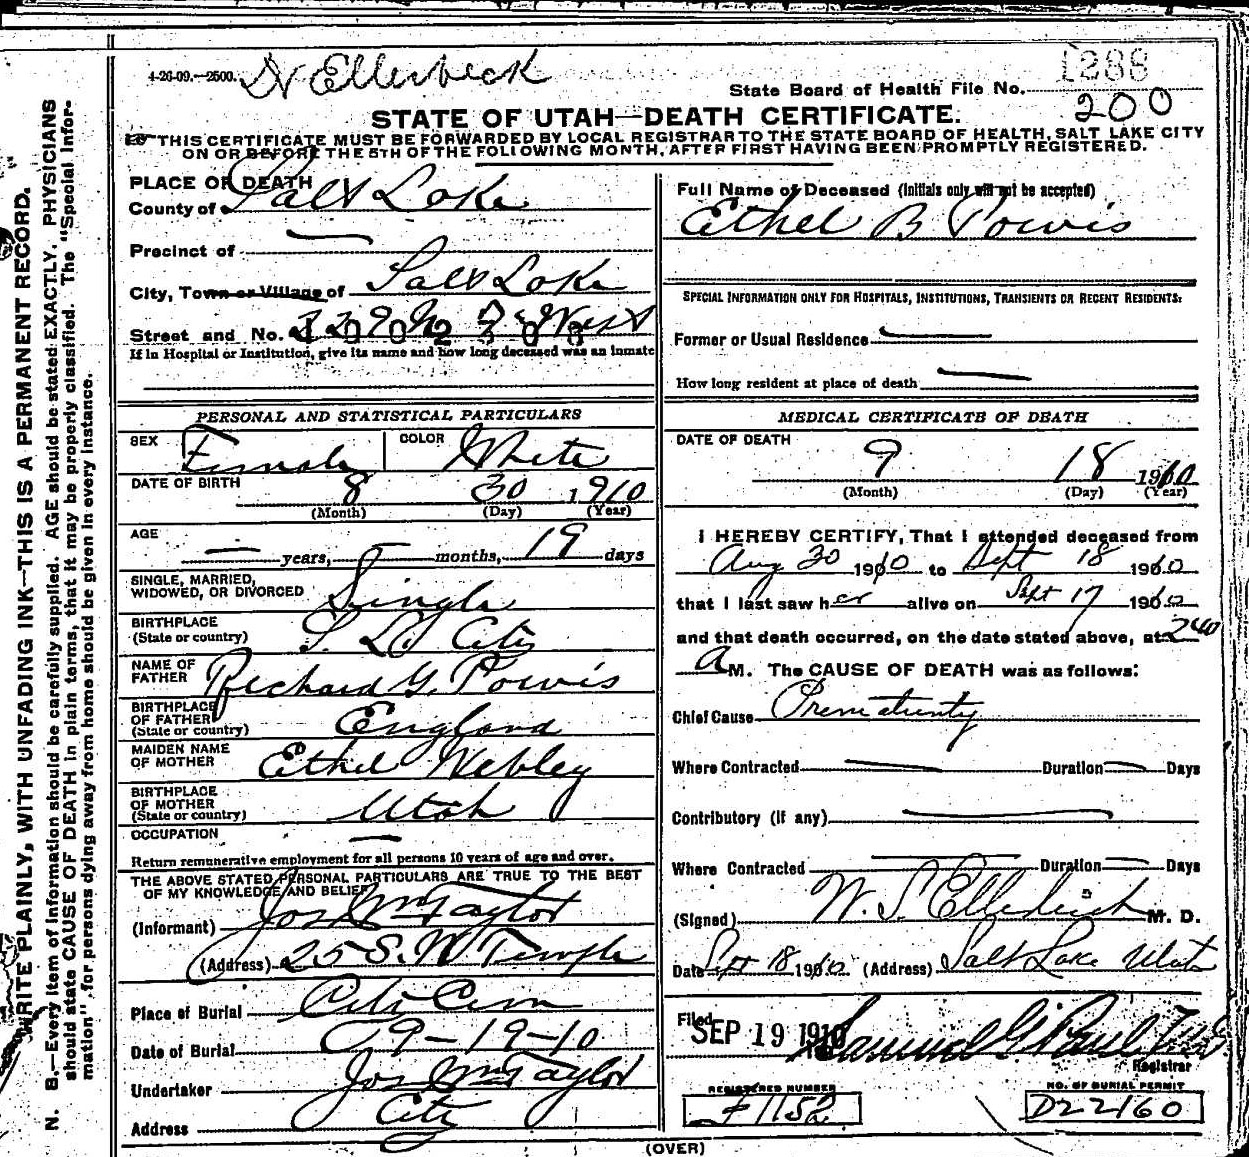 4-26-09.—2500. Dr Ellerbeck
State Board of Health File No. 1288
200
STATE OF UTAH—DEATH CERTIFICATE.
THIS CERTIFICATE MUST BE FORWARDED BY LOCAL REGISTRAR TO THE STATE BOARD OF HEALTH, SALT LAKE CITY
ON OR BEFORE THE 5TH OF THE FOLLOWING MONTH, AFTER FIRST HAVING BEEN PROMPTLY REGISTERED.
WRITE PLAINLY, WITH UNFADING INK—THIS IS A PERMANENT RECORD.
N. B.—Every item of information should be carefully supplied. AGE should be stated EXACTLY. PHYSICIANS
should state CAUSE OF DEATH in plain terms, that it may be properly classified. The "Special Infor-
mation" for persons dying away from home should be given in every instance.
PLACE OF DEATH
County of Salt Lake
Precinct of —
City, Town or Village of Salt Lake
Street and No. West
If in Hospital or Institution, give its name and how long deceased was an inmate
PERSONAL AND STATISTICAL PARTICULARS
SEX Female COLOR White
DATE OF BIRTH 8 30 1910
(Month) (Day) (Year)
AGE — years, — months, 19 days
SINGLE, MARRIED,
WIDOWED, OR DIVORCED Single
BIRTHPLACE
(State or country) S. L. City
NAME OF
FATHER Richard G. Powis
BIRTHPLACE
OF FATHER
(State or country) England
MAIDEN NAME
OF MOTHER Ethel Webley
BIRTHPLACE
OF MOTHER
(State or country) Utah
OCCUPATION —
Return remunerative employment for all persons 10 years of age and over.
THE ABOVE STATED PERSONAL PARTICULARS ARE TRUE TO THE BEST
OF MY KNOWLEDGE AND BELIEF
(Informant) Jos Wm Taylor
(Address) 25 S. W Temple
Place of Burial City Cem
Date of Burial 9-19-10
Undertaker Jos Wm Taylor
Address City
Full Name of Deceased (Initials only will not be accepted)
Ethel B Powis
SPECIAL INFORMATION ONLY FOR HOSPITALS, INSTITUTIONS, TRANSIENTS OR RECENT RESIDENTS:
Former or Usual Residence —
How long resident at place of death —
MEDICAL CERTIFICATE OF DEATH
DATE OF DEATH
9 18 1910
(Month) (Day) (Year)
I HEREBY CERTIFY, That I attended deceased from
Aug 30 1910 to Sept 18 1910
that I last saw her alive on Sept 17 1910
and that death occurred, on the date stated above, at 240
A M. The CAUSE OF DEATH was as follows:
Chief Cause Prematurity
Where Contracted — Duration — Days
Contributory (if any) —
Where Contracted — Duration — Days
(Signed) W. S. Ellerbeck M. D.
Date Sept 18 1910 (Address) Salt Lake Utah
Filed SEP 19 1910 Samuel G. Paul
Registrar
REGISTERED NUMBER
F1152
NO. OF BURIAL PERMIT
D22160
(OVER)